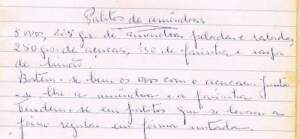 Palitos de amêndoas
5 ovos, 125 grs de amêndoa pelada e ralada,
250 grs de açucar, 150 de farinha e raspa
de limão.
Batem-se bem os ovos com o açucar. Junta
-se-lhe a amêndoa e a farinha
tendem-se em palitos que se levam ao
forno regular em forma untada.